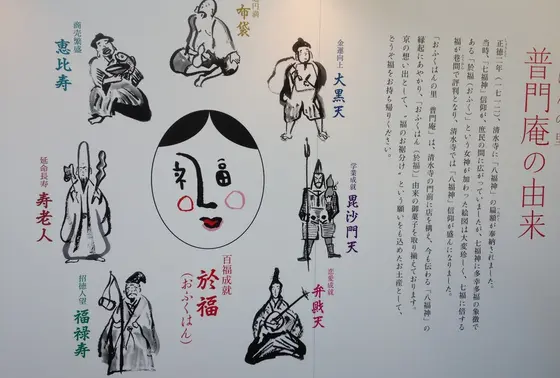 普門庵の由来
正徳二年(一七一二)、清水寺に「八福神」の扁額が奉納されました。
当時、「七福神」信仰が、庶民の間に広がっていましたが、七福神に多幸多福の象徴で
ある「於福(おふく)」という女神が加わった絵図は大変珍しく、七福に倍する
福が巷間で評判となり、清水寺では「八福神」信仰が盛んになりました。
「おふくはんの里 普門庵」は、清水寺の門前に店を構え、今も伝わる「八福神」の
縁起にあやかり、「おふくはん(於福)」由来の御菓子を取り揃えております。
京の想い出として、“福のお裾分け”という願いをも込めたお土産として、
どうぞ福をお持ち帰りください。
金運向上
大黒天
学業成就
毘沙門天
恋愛成就
弁戝天
円満
布袋
福
百福成就
於福
(おふくはん)
商売繁盛
恵比寿
延命長寿
寿老人
招徳人望
福禄寿